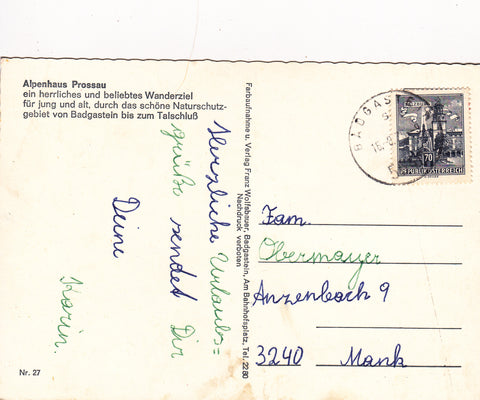 Alpenhaus Prossau
ein herrliches und beliebtes Wanderziel
für jung und alt, durch das schöne Naturschutz-
gebiet von Badgastein bis zum Talschluß
Herzliche Urlaubs=
grüße sendet Dir
Deine
Karin.
Nr. 27
Farbaufnahme u. Verlag Franz Wolfsbauer, Badgastein, Am Bahnhofsplatz, Tel. 2280
Nachdruck verboten
BADGAS
70
REPUBLIK ÖSTERREICH
Fam.
Obermayer
Anzenbach 9
3240 Mank